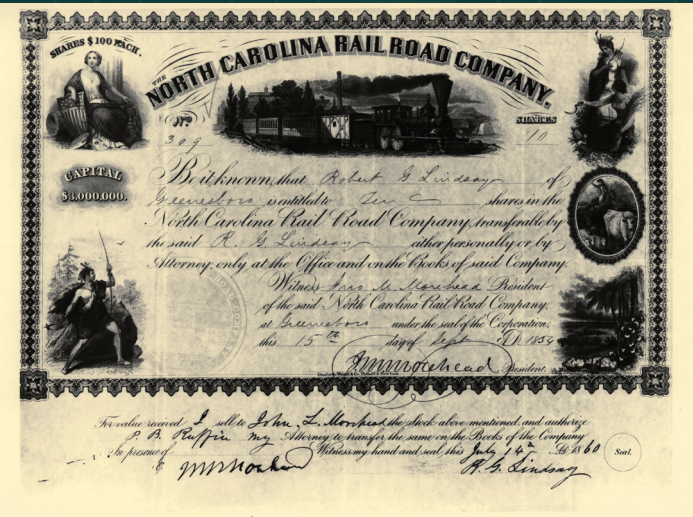 SHARES $100 EACH.
THE
NORTH CAROLINA RAIL ROAD COMPANY.
No
309
SHARES
10
CAPITAL
$3.000.000.
Be it known, that Robert G Lindsay of
Greensboro is entitled to Ten shares in the
North Carolina Rail Road Company, transferable by
the said R. G Lindsay either personally or by
Attorney, only at the Office and on the Books of said Company.
Witness Jno M. Morehead President
of the said North Carolina Rail Road Company,
at Greensboro under the seal of the Corporation,
this 15th day of Sept A.D. 1854
J M Morehead President.
For value received I sell to John L. Morehead the stock above mentioned, and authorize
P. B. Ruffin my Attorney to transfer the same on the Books of the Company
In presence of Witness my hand and seal this July 14th AD 1860 Seal.
R. G. Lindsay